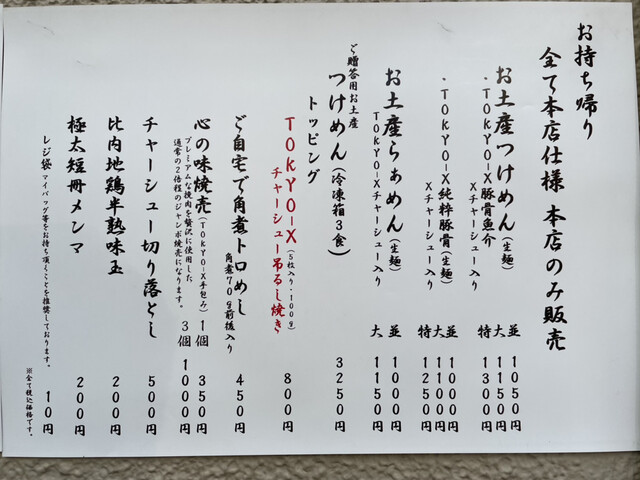 お持ち帰り
全て本店仕様 本店のみ販売
お土産つけめん(生麺) 並 1050円
・TOKYO-X豚骨魚介 大 1150円
Xチャーシュー入り 特 1300円
・TOKYO-X純粋豚骨(生麺) 並 1000円
Xチャーシュー入り 大 1100円
特 1250円
お土産らぁめん(生麺) 並 1000円
TOKYO-Xチャーシュー入り 大 1150円
ご贈答用お土産
つけめん(冷凍箱3食) 3250円
トッピング
TOKYO-X(5枚入り・100g)
チャーシュー吊るし焼き 800円
ご自宅で角煮トロめし 450円
角煮70g前後入り
心の味焼売(TOKYO-X手包み) 1個 350円
プレミアムな挽肉を贅沢に使用した 3個 1000円
通常の2倍程のジャンボ焼売になります。
チャーシュー切り落とし 500円
比内地鶏半熟味玉 200円
極太短冊メンマ 200円
レジ袋 マイバッグ等をお持ち頂くことを推奨しております。 10円
※全て税込価格です。